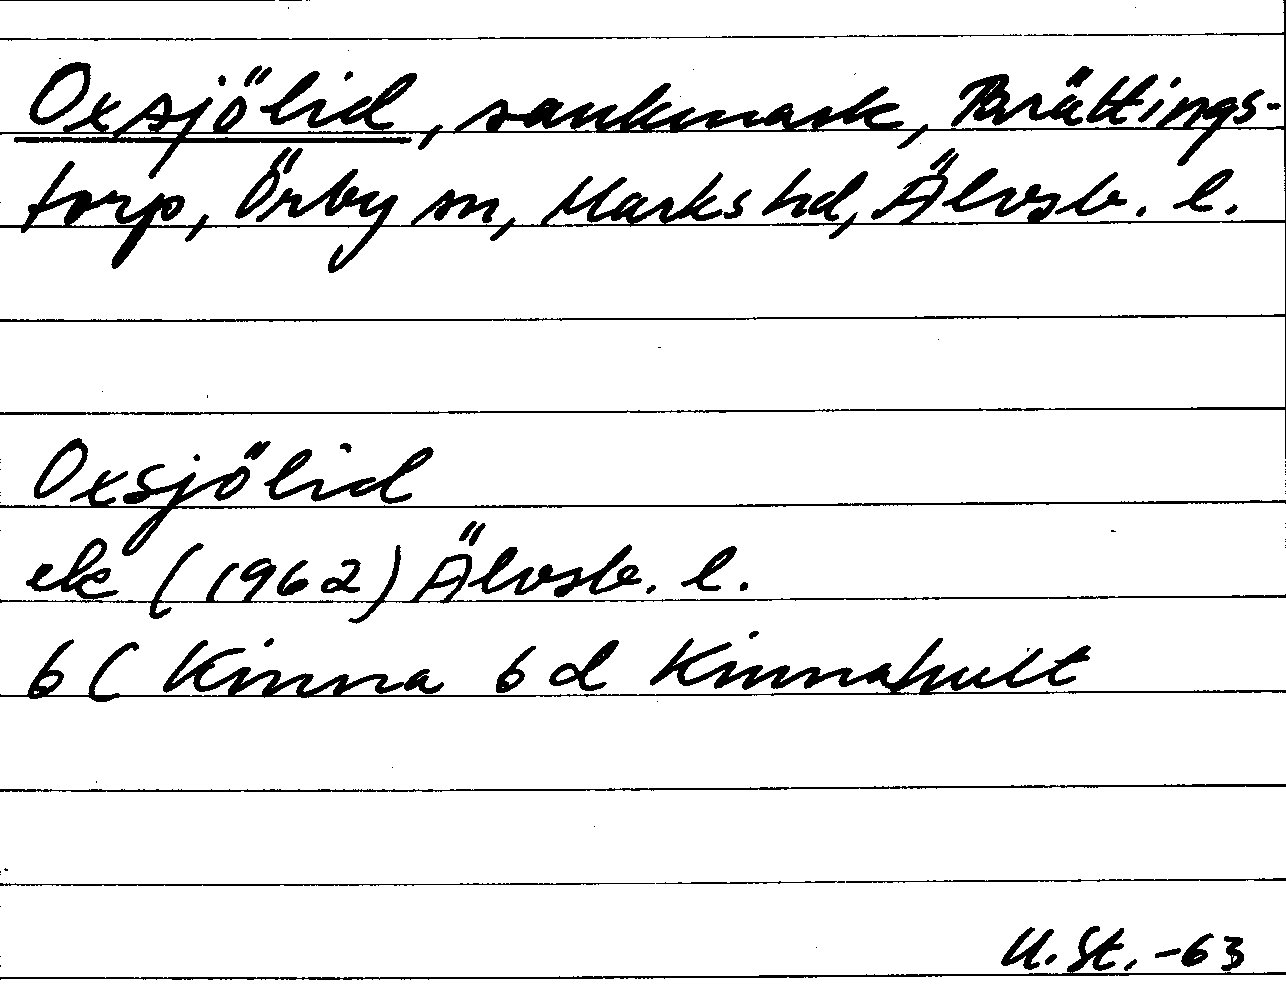 Oxsjölid, sankmark, Brättings-
torp, Örby sn, Marks hd, Älvsb. l.
Oxsjölid
ek (1962) Älvsb. l.
6C Kinna 6d Kinnahult
U. St. -63